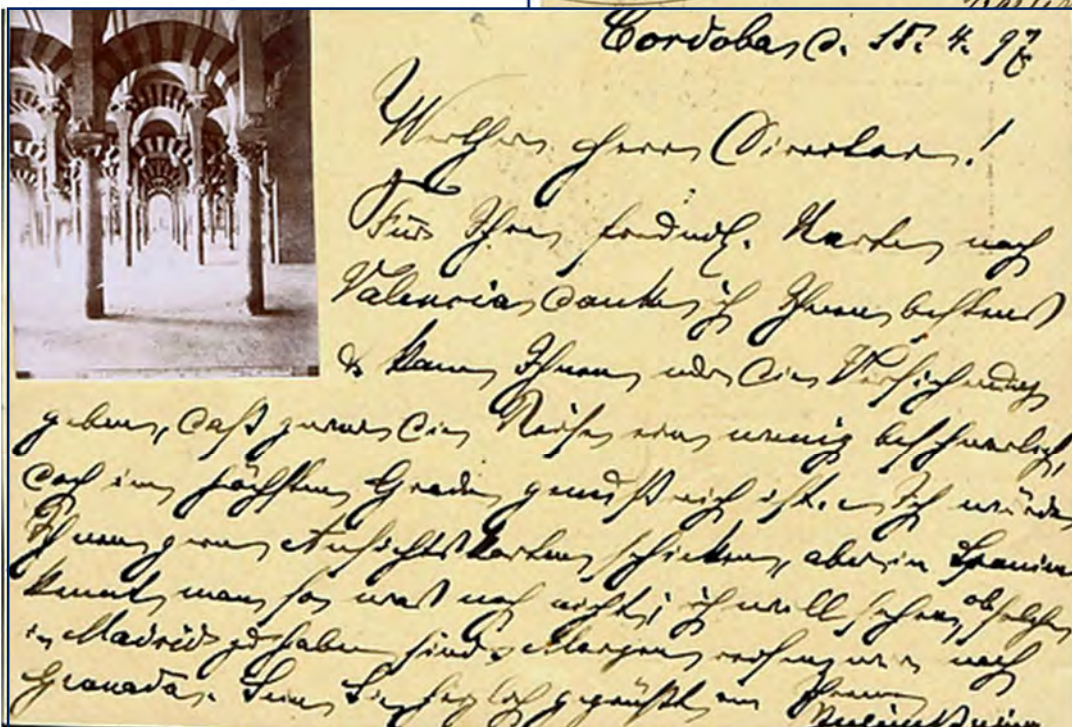 Cordoba, d. 18. 4. 97
Werther Herr Director!
Für Ihre freundl. Karte nach
Valencia danke ich Ihnen bestens
& kann Ihnen nur die Versicherung
geben, daß zwar die Reise ein wenig beschwerlich,
doch im höchsten Grade genußreich ist. Ich würde
Ihnen gern Ansichtskarten schicken, aber in Spanien
kennt man so was noch nicht; ich will sehen, ob solche
in Madrid zu haben sind. Morgen reisen wir nach
Granada. Seien Sie herzlich gegrüßt von Ihrem